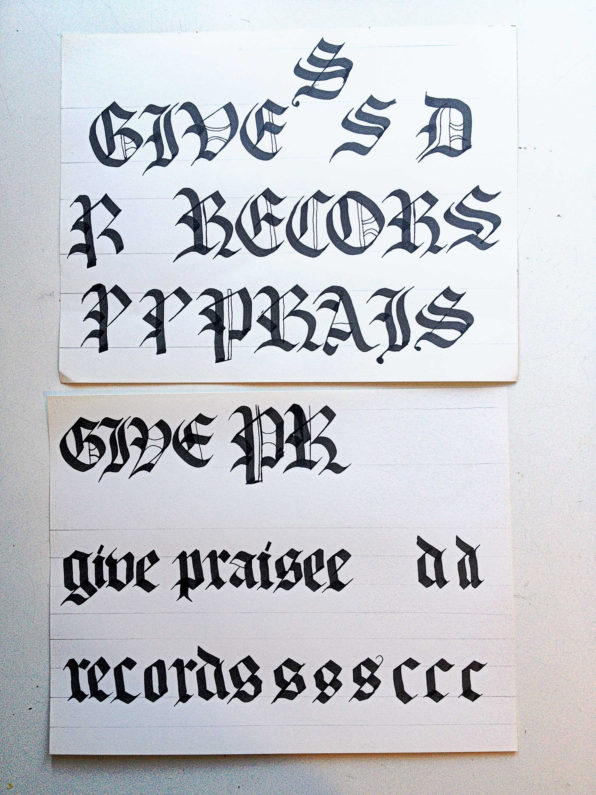 S
GIVE S D
R RECORS
PPPRAIS
GIVE PR
give praisee dd
recordssssccc